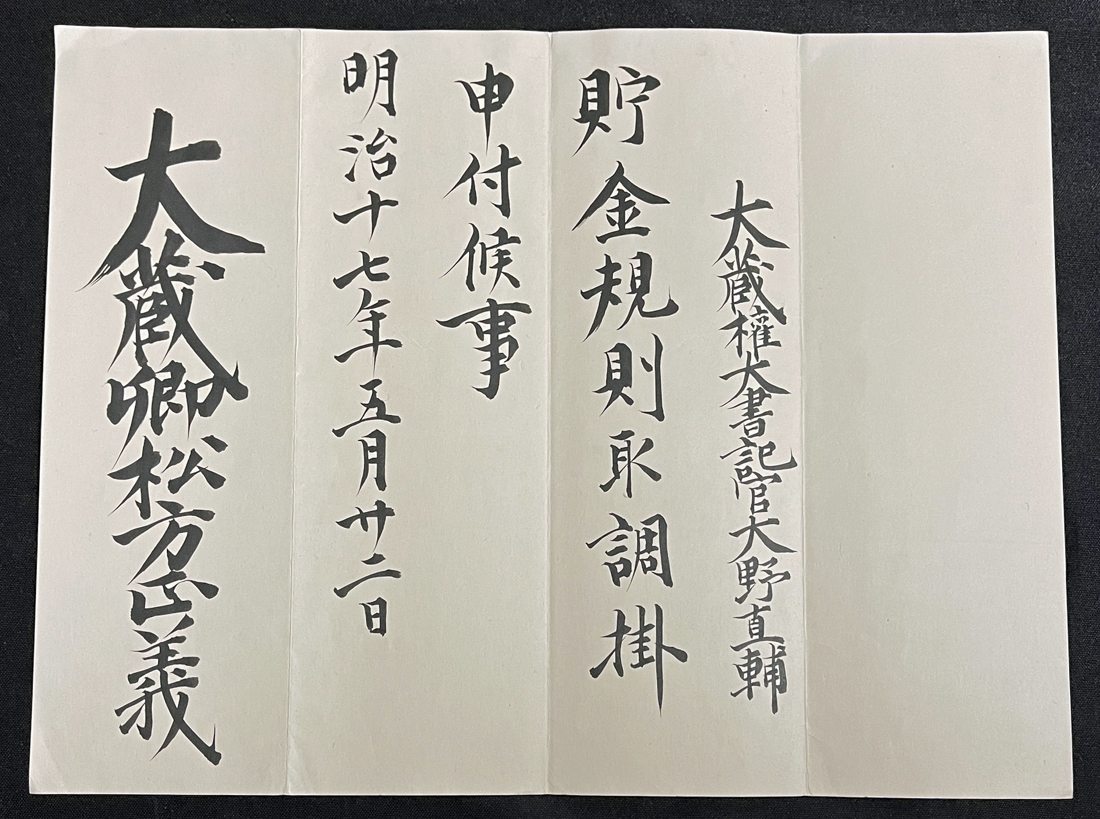 大蔵権大書記官大野直輔
貯金規則取調掛
申付候事
明治十七年五月廿二日
大蔵卿松方正義